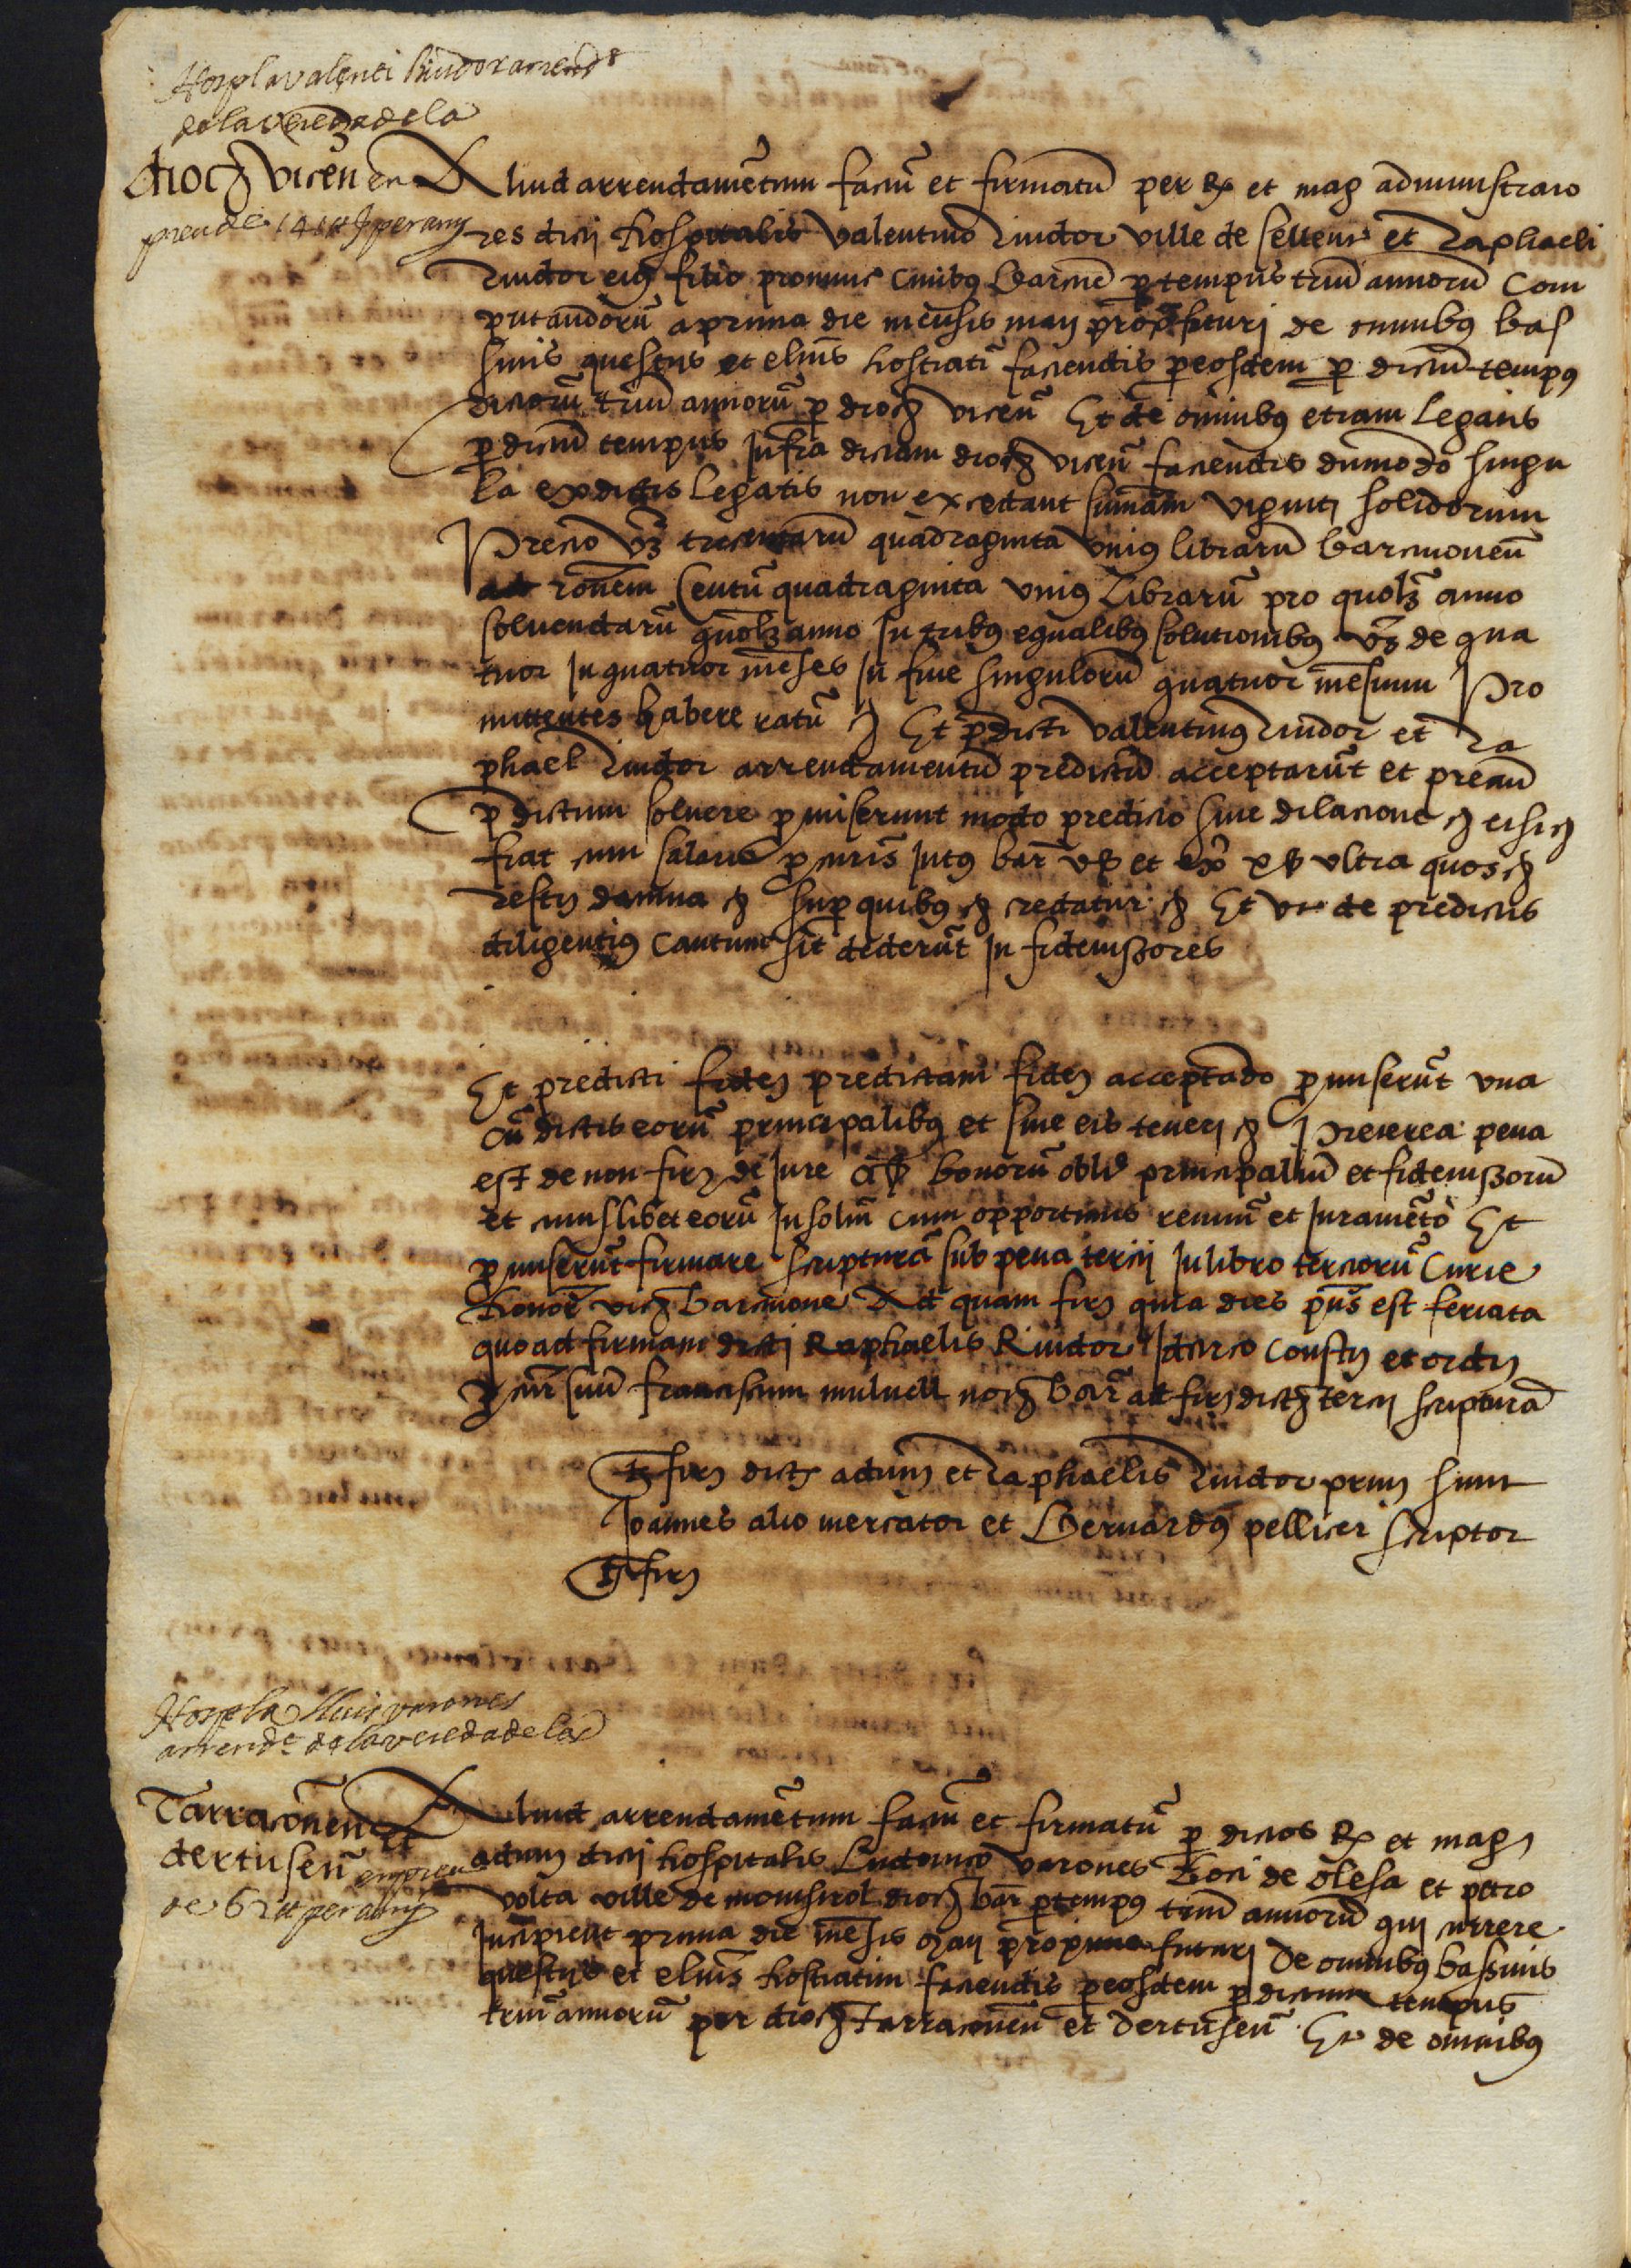 Hospl a valenti Riudor arrend.t
de la vereda de la
dioc vicen en
pren de 141 ℔ per any
Aliud arrendamētum factū et firmatū per Rdos et mag administrato
res dicti hospitalis valentino Riudor ville de et Raphaeli
Riudor eius filio pronunc civibus Barcne p tempus triū annorū Com
putandorū a prima die mensis maij futurj de omnibus bas
sinis questijs et elinis hostiatī faciendis per eosdem p dictum tempus
dictorū triū annorū p dioc vicen Et de omnibus etiam legatis
p dictū tempus Infra dictam dioc vicen faciendis dumodo singu
la ex dictis legatis non excedant sumam viginti solidorum
Precio vz tricentarū quadraginta unius librarū barcinonen
ad ronem Centū quadraginta unius Librarū pro quolz anno
solvendarū quolz anno In tribus equalibus solutionibus vz de qua
tuor In quatuor meses In fine singulorū quatuor mesium Pro
mittentes habere ratū Et pdicti valentinus Riudor et Ra
phael Riudor arrendamentū predictū acceptarūt et preciū
pdictum solvere pmiserunt modo predicto sine dilacione
fiat cum salario pcuris Intus bar v ß et ex x ß ultra quos
Restis damna sup quibus credatur Et ut de predictis
diligentius cautum sit dederūt In fideiussores
Et predicti fides predictam fides acceptado pmiserūt una
cū dictis eorū principalibus et sine eis tenerj Preterea pena
est de non fir de Jure bonorū obliō principaliū et fideiussorū
et cuiuslibet eorū In solm cum opportunis renun et Juramēto Et
pmiserūt firmare scripturā sub pena tercij In libro terciorū Curie
honor vic barcinone Ad quam fir quia dies pns est feriata
quo ad firmam dictj Raphaelis Riudor Idcirco constis et ordis
pcur suū franciscum mulnell not bar ad fir dict tercij scripturā
Ts fir dict admis et Raphaelis Riudor predis sunt
Joannes alio mercator et Bernardus pellicer scriptor
Ts fir
Hospl a lluis varones
arrend.t de la vereda de la
Tarraconen et
dertusen en pren
de 62 ℔ per any
Aliud arrendamētum factū et firmatū p dictos Rdos et mags
admis dicti hospitalis Ludovico varones loci de olesa et petro
volta ville de monistrol dioc bar p tempus triū annorū qui currere
Incipient prima die mēsis maij proxime futuri De omnibus bassinis
questijs et elinis hostiatim faciendis per eosdem p dictum tempus
triū annorū per dioc Tarraconen et Dertusen Et de omnibus